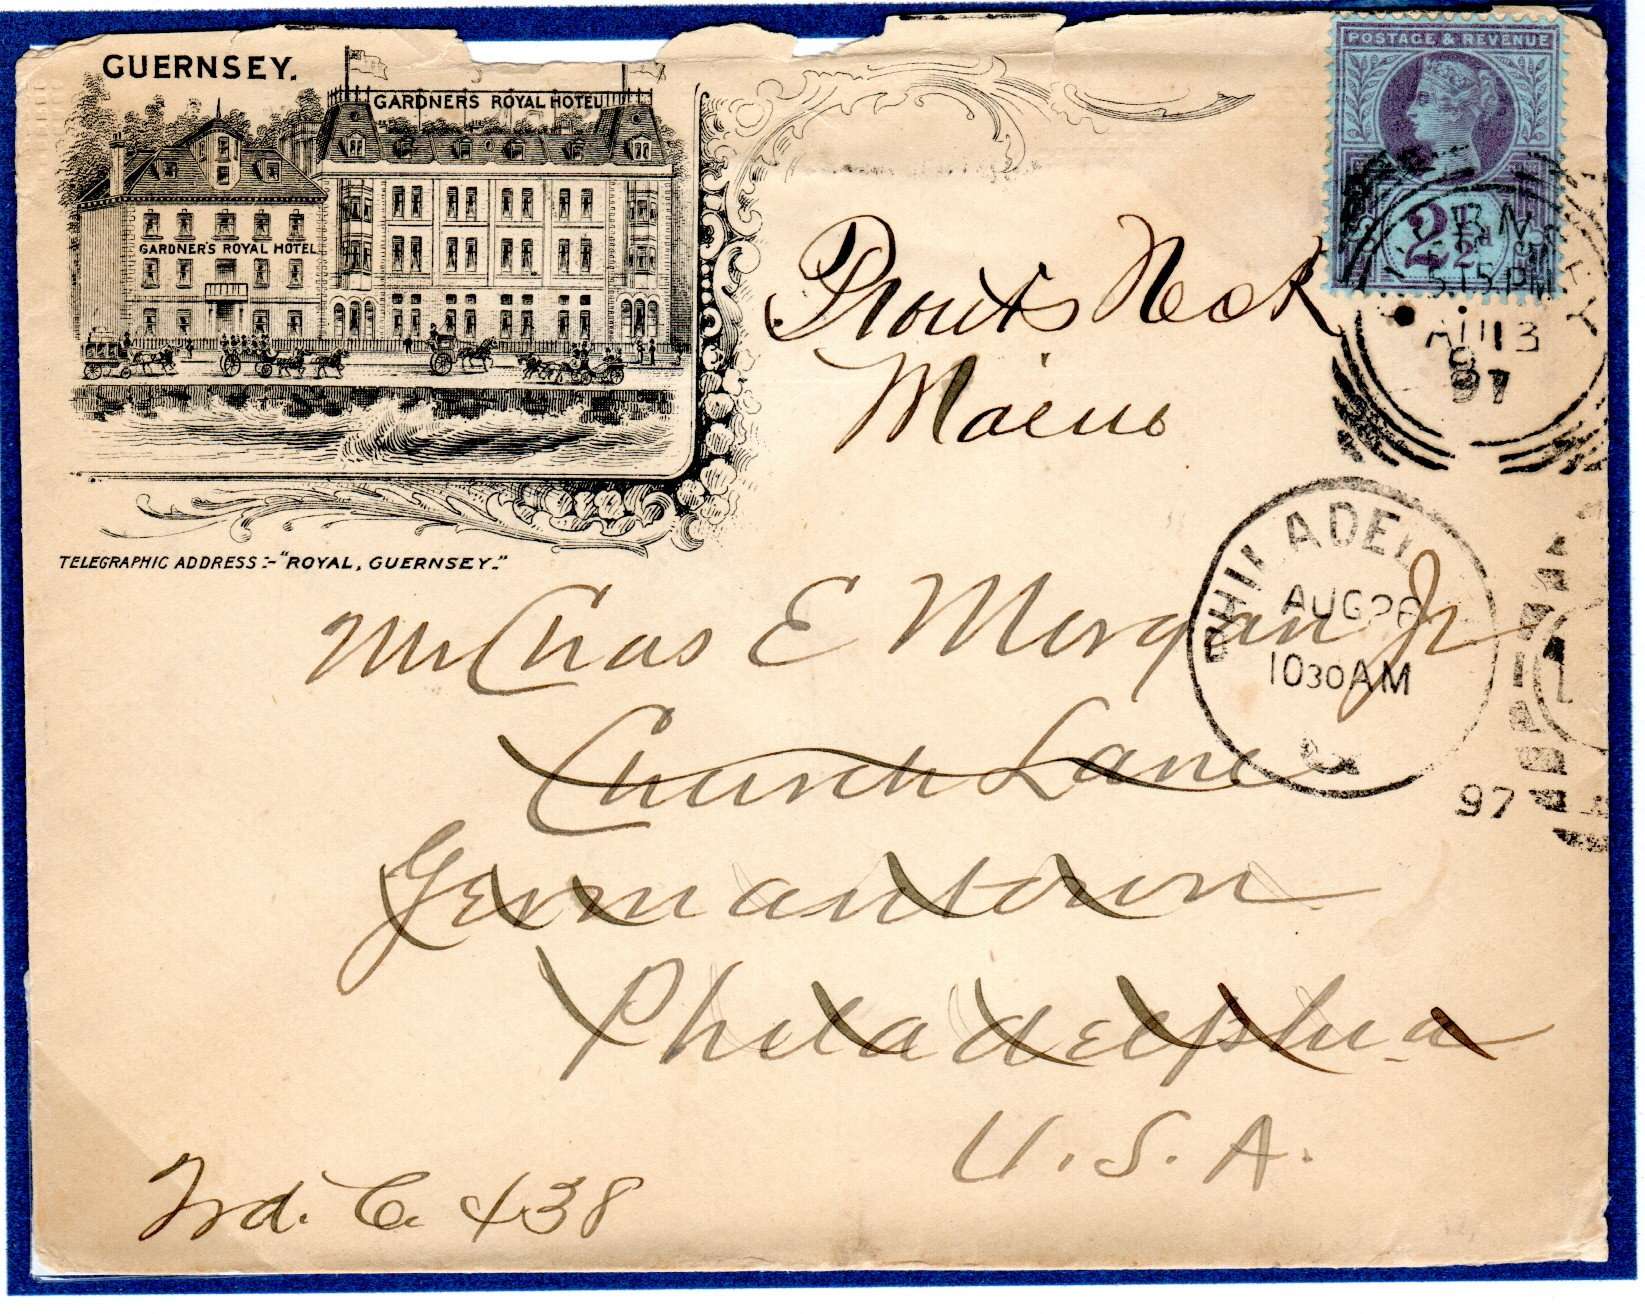 GUERNSEY.
GARDNERS ROYAL HOTEL
GARDNER'S ROYAL HOTEL
TELEGRAPHIC ADDRESS :- "ROYAL, GUERNSEY."
POSTAGE & REVENUE
2½d
5.15 PM
AU 13
97
Prouts Neck
Maine
PHILADEL
AUG 26
10 30 AM
97
Mr Chas E Morgan Jr
Church Lane
Germantown
Philadelphia
U.S.A.
Frd. C. 438